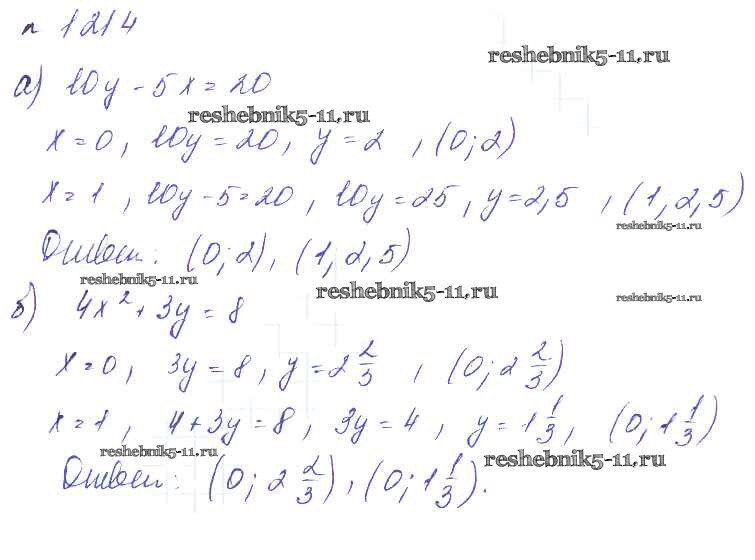 п 1214
reshebnik5-11.ru
а) 10y - 5x = 20
reshebnik5-11.ru
x = 0, 10y = 20, y = 2 , (0; 2)
x = 1 , 10y - 5 = 20 , 10y = 25, y = 2,5 , (1, 2, 5)
reshebnik5-11.ru
Ответ: (0; 2), (1, 2, 5)
reshebnik5-11.ru
reshebnik5-11.ru
reshebnik5-11.ru
б) 4x² + 3y = 8
x = 0, 3y = 8, y = 2 2/3 , (0; 2 2/3)
x = 1 , 4 + 3y = 8, 3y = 4, y = 1 1/3, (0; 1 1/3)
reshebnik5-11.ru
reshebnik5-11.ru
Ответ: (0; 2 2/3), (0; 1 1/3).